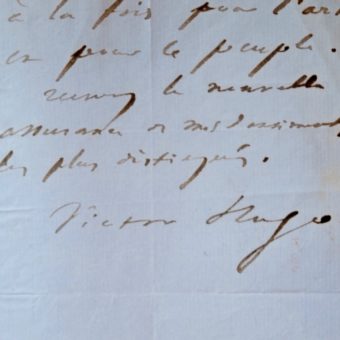 à la fois pour l'art
et pour le peuple.
recevez la nouvelle
assurance de mes sentiments
les plus distingués.
Victor Hugo